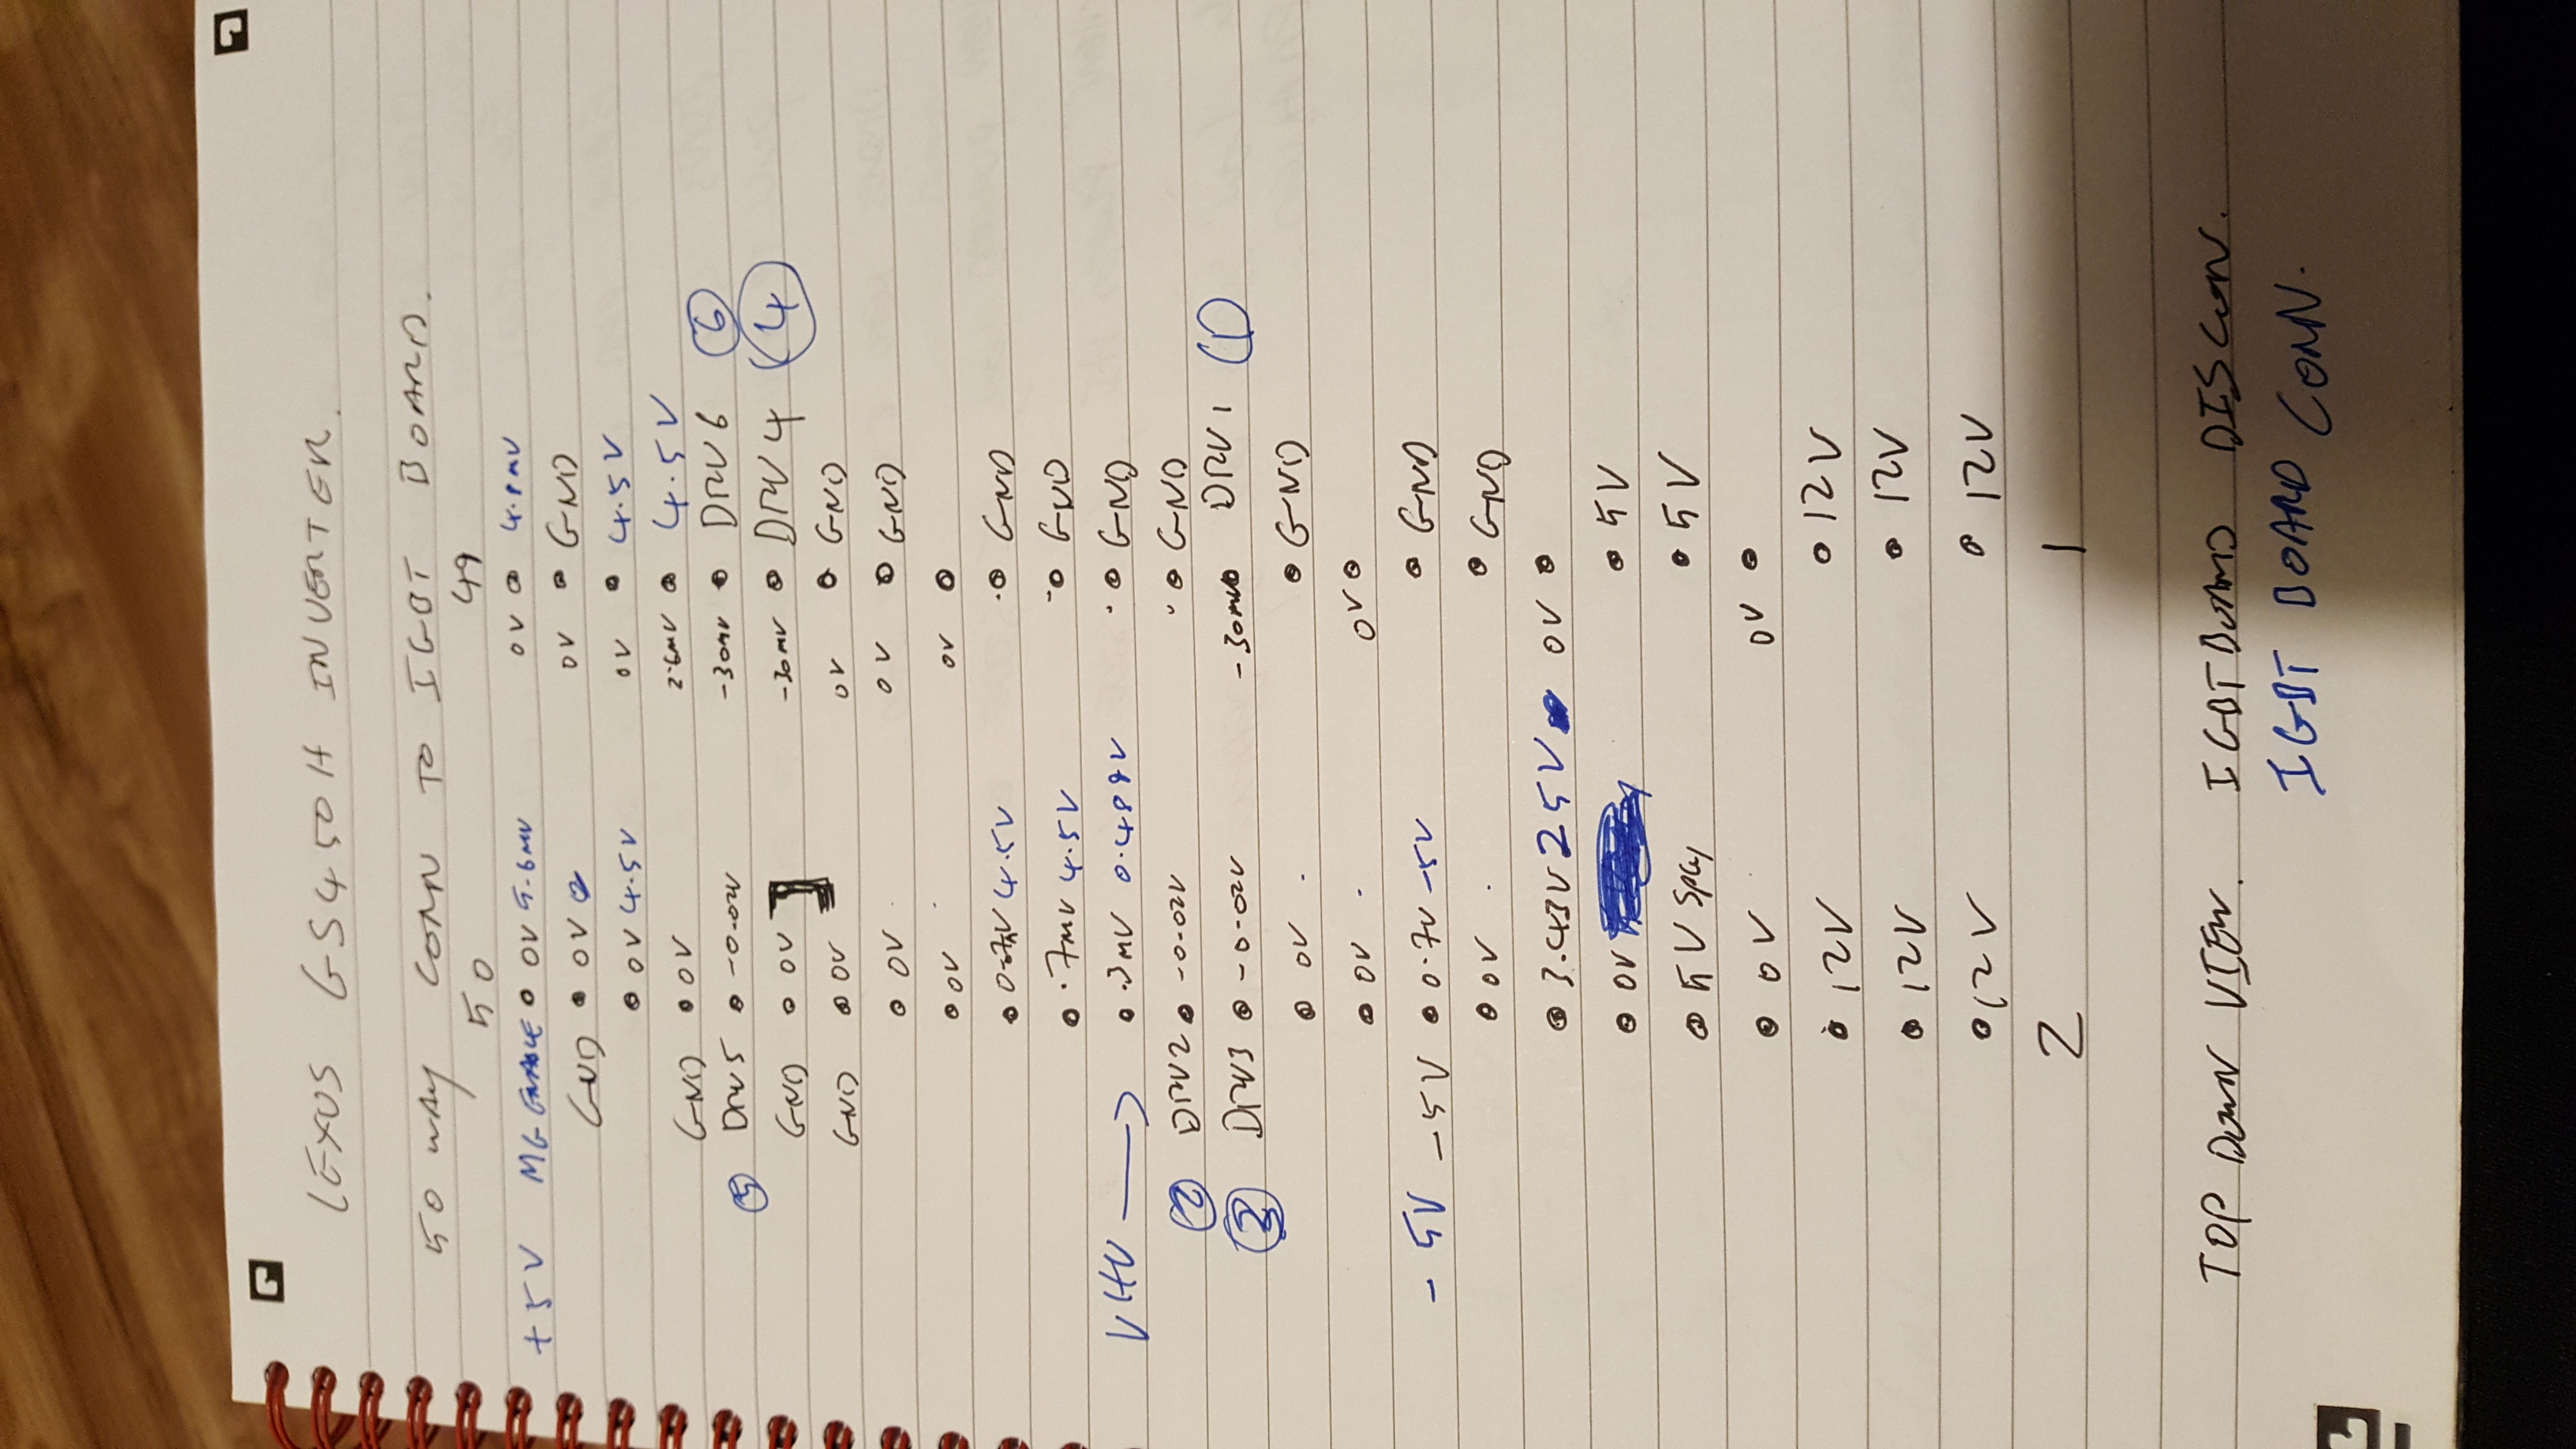 LEXUS GS450H INVERTER.
50 WAY CONN TO IGBT BOARD.
50 49
+5V MG ENABLE 0V 5.6mV 0V 4.8mV
GND 0V 0V GND
0V 4.5V 0V 4.5V
GND 0V 2.6mV 4.5V
5 DRV5 -0.02V -30mV DRV6 6
GND 0V -30mV DRV4 4
GND 0V 0V GND
0V 0V GND
0V 0V
4.5V GND
.7mV 4.5V GND
VHV → .3mV 0.488V GND
2 DRV2 -0.02V GND
3 DRV3 -0.02V -30mV DRV1 1
0V GND
0V 0V
-5V -5V 0.7V -5V GND
0V GND
3.43V 25V 0V
0V 5V
5V SPLY 5V
0V 0V
12V 12V
12V 12V
12V 12V
2 1
TOP DOWN VIEW. IGBT BOARD DISCONN.
IGBT BOARD CONN.